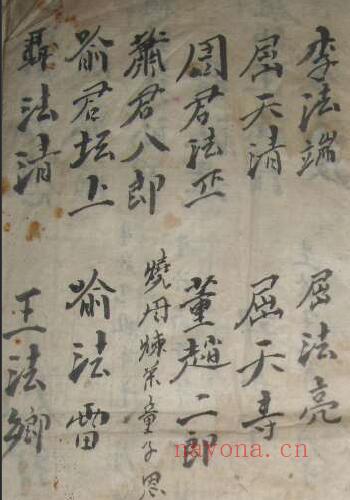 李法端 屈法亮
屈天清 屈天寿
周君法正 董趙二郎
蕭君八郎 燒丹煉藥童子恩
俞君坛上 俞法雷
聶法清 王法鄉
nayona.cn